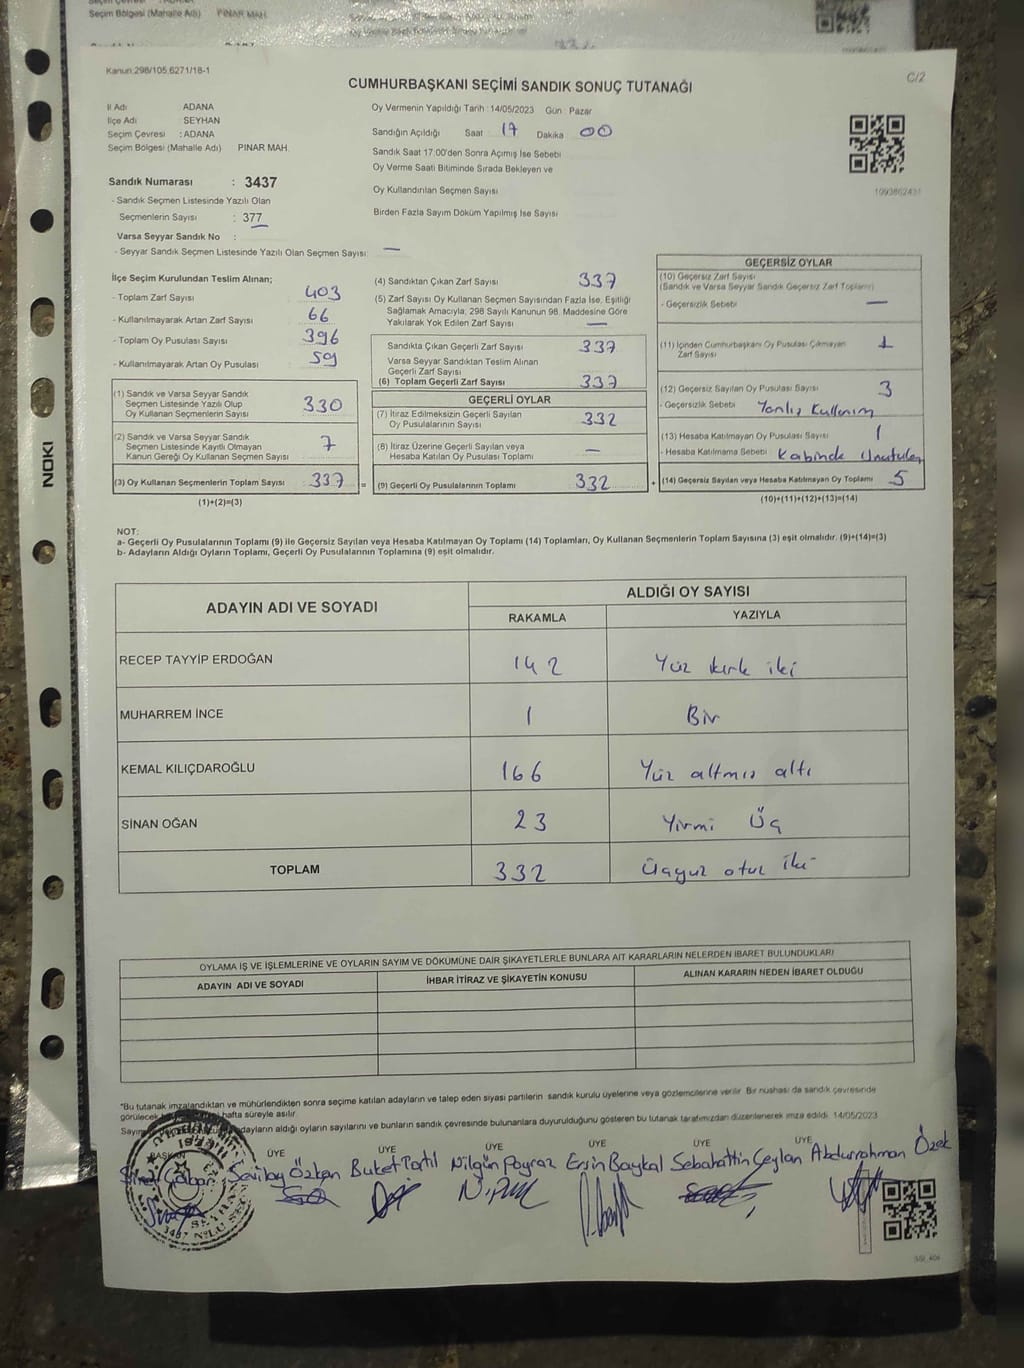 Seçim Bölgesi (Mahalle Adı) PINAR MAH.
Kanun:298/105,6271/18-1
C/2
CUMHURBAŞKANI SEÇİMİ SANDIK SONUÇ TUTANAĞI
İl Adı ADANA
İlçe Adı SEYHAN
Seçim Çevresi : ADANA
Seçim Bölgesi (Mahalle Adı) PINAR MAH.
Sandık Numarası : 3437
- Sandık Seçmen Listesinde Yazılı Olan
Seçmenlerin Sayısı : 377
Varsa Seyyar Sandık No :
- Seyyar Sandık Seçmen Listesinde Yazılı Olan Seçmen Sayısı: —
Oy Vermenin Yapıldığı Tarih : 14/05/2023 Gün : Pazar
Sandığın Açıldığı Saat 17 Dakika 00
Sandık Saat 17:00'den Sonra Açımış İse Sebebi
Oy Verme Saati Bitiminde Sırada Bekleyen ve
Oy Kullandırılan Seçmen Sayısı
Birden Fazla Sayım Döküm Yapılmış İse Sayısı
1093862431
İlçe Seçim Kurulundan Teslim Alınan;
- Toplam Zarf Sayısı 403
- Kullanılmayarak Artan Zarf Sayısı 66
- Toplam Oy Pusulası Sayısı 396
- Kullanılmayarak Artan Oy Pusulası 59
(1) Sandık ve Varsa Seyyar Sandık
Seçmen Listesinde Yazılı Olup
Oy Kullanan Seçmenlerin Sayısı 330
(2) Sandık ve Varsa Seyyar Sandık
Seçmen Listesinde Kayıtlı Olmayan
Kanun Gereği Oy Kullanan Seçmen Sayısı 7
(3) Oy Kullanan Seçmenlerin Toplam Sayısı 337 =
(1)+(2)=(3)
(4) Sandıktan Çıkan Zarf Sayısı 337
(5) Zarf Sayısı Oy Kullanan Seçmen Sayısından Fazla İse, Eşitliği
Sağlamak Amacıyla, 298 Sayılı Kanunun 98. Maddesine Göre
Yakılarak Yok Edilen Zarf Sayısı —
Sandıkta Çıkan Geçerli Zarf Sayısı 337
Varsa Seyyar Sandıktan Teslim Alınan
Geçerli Zarf Sayısı
(6) Toplam Geçerli Zarf Sayısı 337
GEÇERLİ OYLAR
(7) İtiraz Edilmeksizin Geçerli Sayılan
Oy Pusulalarının Sayısı 332
(8) İtiraz Üzerine Geçerli Sayılan veya
Hesaba Katılan Oy Pusulası Toplamı —
(9) Geçerli Oy Pusulalarının Toplamı 332 +
GEÇERSİZ OYLAR
(10) Geçersiz Zarf Sayısı
(Sandık ve Varsa Seyyar Sandık Geçersiz Zarf Toplamı)
- Geçersizlik Sebebi —
(11) İçinden Cumhurbaşkanı Oy Pusulası Çıkmayan
Zarf Sayısı 1
(12) Geçersiz Sayılan Oy Pusulası Sayısı 3
- Geçersizlik Sebebi Yanlış Kullanım
(13) Hesaba Katılmayan Oy Pusulası Sayısı 1
- Hesaba Katılmama Sebebi Kabinde Unutulan
(14) Geçersiz Sayılan veya Hesaba Katılmayan Oy Toplamı 5
(10)+(11)+(12)+(13)=(14)
NOT:
a- Geçerli Oy Pusulalarının Toplamı (9) ile Geçersiz Sayılan veya Hesaba Katılmayan Oy Toplamı (14) Toplamları, Oy Kullanan Seçmenlerin Toplam Sayısına (3) eşit olmalıdır. (9)+(14)=(3)
b- Adayların Aldığı Oyların Toplamı, Geçerli Oy Pusulalarının Toplamına (9) eşit olmalıdır.
ADAYIN ADI VE SOYADI ALDIĞI OY SAYISI
RAKAMLA YAZIYLA
RECEP TAYYİP ERDOĞAN 142 Yüz kırk iki
MUHARREM İNCE 1 Bir
KEMAL KILIÇDAROĞLU 166 Yüz altmış altı
SİNAN OĞAN 23 Yirmi Üç
TOPLAM 332 Üçyüz otuz iki
OYLAMA İŞ VE İŞLEMLERİNE VE OYLARIN SAYIM VE DÖKÜMÜNE DAİR ŞİKAYETLERLE BUNLARA AİT KARARLARIN NELERDEN İBARET BULUNDUKLARI
ADAYIN ADI VE SOYADI İHBAR İTİRAZ VE ŞİKAYETİN KONUSU ALINAN KARARIN NEDEN İBARET OLDUĞU
"Bu tutanak imzalandıktan ve mühürlendikten sonra seçime katılan adayların ve talep eden siyasi partilerin sandık kurulu üyelerine veya gözlemcilerine verilir. Bir nüshası da sandık çevresinde
görülecek hafta süreyle asılır.
adayların aldığı oyların sayılarını ve bunların sandık çevresinde bulunanlara duyurulduğunu gösteren bu tutanak tarafımızdan düzenlenerek imza edildi. 14/05/2023
ÜYE ÜYE ÜYE ÜYE ÜYE ÜYE
Sevilay Özkan Buket Partıl Nilgün Poyraz Ersin Baykal Sebahattin Ceylan Abdurrahman Özek
SEYHAN
3437
NOKI